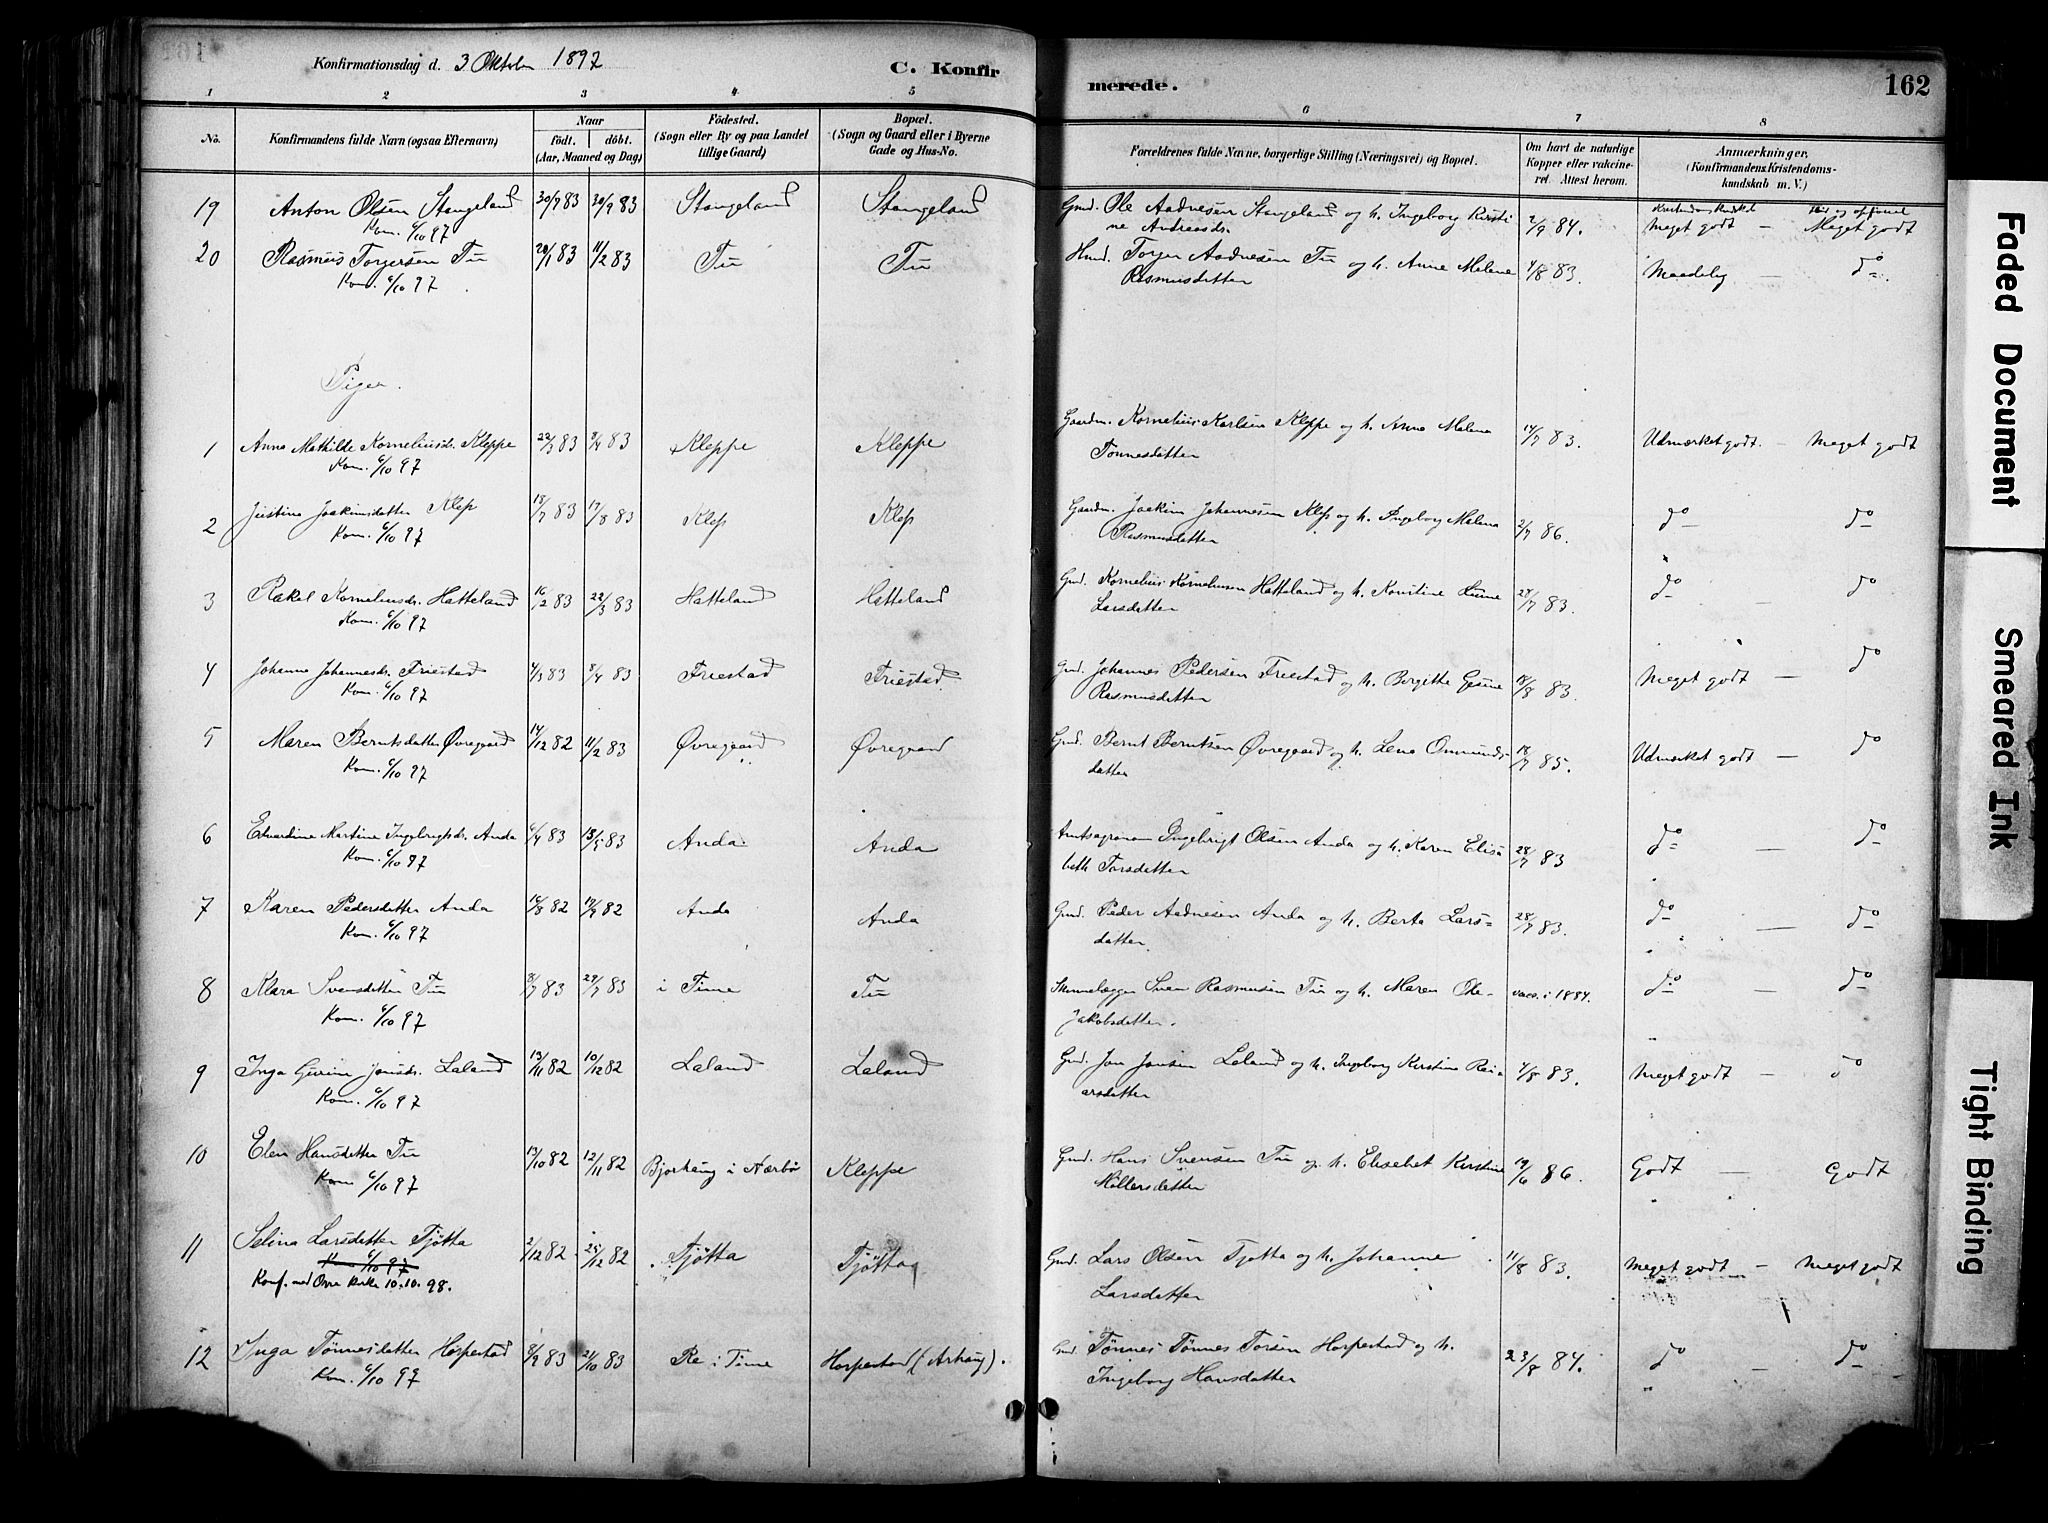 Konfirmationsdag d. 3 Oktober 1897
C. Konfir
merede.
162
1 2 3 4 5 6 7 8
No.
Konfirmandens fulde Navn (ogsaa Efternavn)
Naar
født. døbt.
(Aar, Maaned og Dag)
Fødested.
(Sogn eller By og paa Landet
tillige Gaard)
Bopæl.
(Sogn og Gaard eller i Byerne
Gade og Hus-No.
Forældrenes fulde Navne, borgerlige Stilling (Næringsvei) og Bopæl.
Om havt de naturlige
Kopper eller vakcine-
ret. Attest herom.
Anmærkninger.
(Konfirmandens Kristendoms-
kundskab m. V.)
19 Anton Olsen Stangeland 30/9 83 30/9 83 Stangeland Stangeland Gmd. Ole Aadnesen Stangeland og h. Ingeborg Kirsti 2/9 84. Meget godt — Meget godt
Kom. 6/10 97 ne Andreasdr.
20 Rasmus Torgersen Tu 20/1 83 11/2 83 Tu Tu Torger Aadnesen Tu og h. Anne Malene 4/8 83. Maadelig — do
Kom. 6/10 97 Rasmusdatter
Piger.
1 Anna Mathilde Korneliusdr. Kleppe 22/3 83 8/4 83 Kleppe Kleppe Gaardm. Kornelius Karlsen Kleppe og h. Anne Malena 14/7 83. Udmærket godt. — Meget godt
Kom. 6/10 97 Tønnesdatter
2 Justine Joakimsdatter Klep 18/7 83 17/8 83 Klep Klep Gaardm. Joakim Johannesen Klep og h. Ingeborg Malena 2/7 86. do — do
Kom. 6/10 97 Rasmusdatter
3 Rakel Korneliusdr. Hatteland 16/2 83 22/3 83 Hatteland Hatteland Gmd. Kornelius Kornelius​sen Hatteland og h. 28/7 83. do — do
Kom. 6/10 97 Larsdatter
4 Johanne Johannesdr. Friestad 4/3 83 8/4 83 Friestad Friestad Gmd. Johannes Pedersen Friestad og h. Birgitte Gesine 18/8 83. Meget godt — do
Kom. 6/10 97 Rasmusdatter
5 Maren Berntsdatter Øvregaard 14/12 82 11/2 83 Øvregaard Øvregaard Gmd. Bernt Berntsen Øvregaard og h. Lena Ommunds- 18/7 85. Udmærket godt — do
Kom. 6/10 97 datter
6 Edvardine Martine Ingebrigtsdr. Anda 6/4 83 13/5 83 Anda Anda Amtsagronom Ingebrigt Olsen Anda og h. Karen Elisa 28/7 83 do — do
Kom. 6/10 97 beth Torsdatter
7 Karen Pedersdatter Anda 16/8 82 17/9 82 Anda Anda Gmd. Peder Aadnesen Anda og h. Berta Lars- 28/7 83. do — do
Kom. 6/10 97 datter.
8 Klara Svensdatter Tu 8/7 83 29/7 83 i Time Tu Svenn Rasmusen Tu og h. Maren vacc. i 1884. do — do
Kom. 6/10 97 Jakobsdatter.
9 Inga Gurine Jonsdr. Laland 13/11 82 10/12 82 Laland Laland Gmd. Jon Jonsen Laland og h. Ingeborg Kirstine Rei- 4/8 83. Meget godt — do
Kom. 6/10 97 arsdatter
10 Elen Hansdatter Tu 13/10 82 12/11 82 Bjorhaug i Nærbø Kleppe Gmd. Hans Svensen Tu og h. Elisabet Kirstine 19/6 86. Godt — Godt
Kom. 6/10 97 Møllersdatter
11 Selina Larsdatter Tjøtta 2/12 82 25/12 82 Tjøtta Tjøtta Gmd. Lars Olsen Tjøtta og h. Johanne 11/8 83. Meget godt — Meget godt
Kom. 6/10 97 Larsdatter
Konf. ved Orre Kirke 10.10.98.
12 Inga Tønnesdatter Horpestad 8/9 83 21/10 83 Re i Time Horpestad (Arhaug). Gmd. Tønnes Tønnes Torsen Horpestad og h. 23/8 84. do do
Kom. 6/10 97 Ingeborg Hansdatter
Faded Document
Smeared Ink
Tight Binding